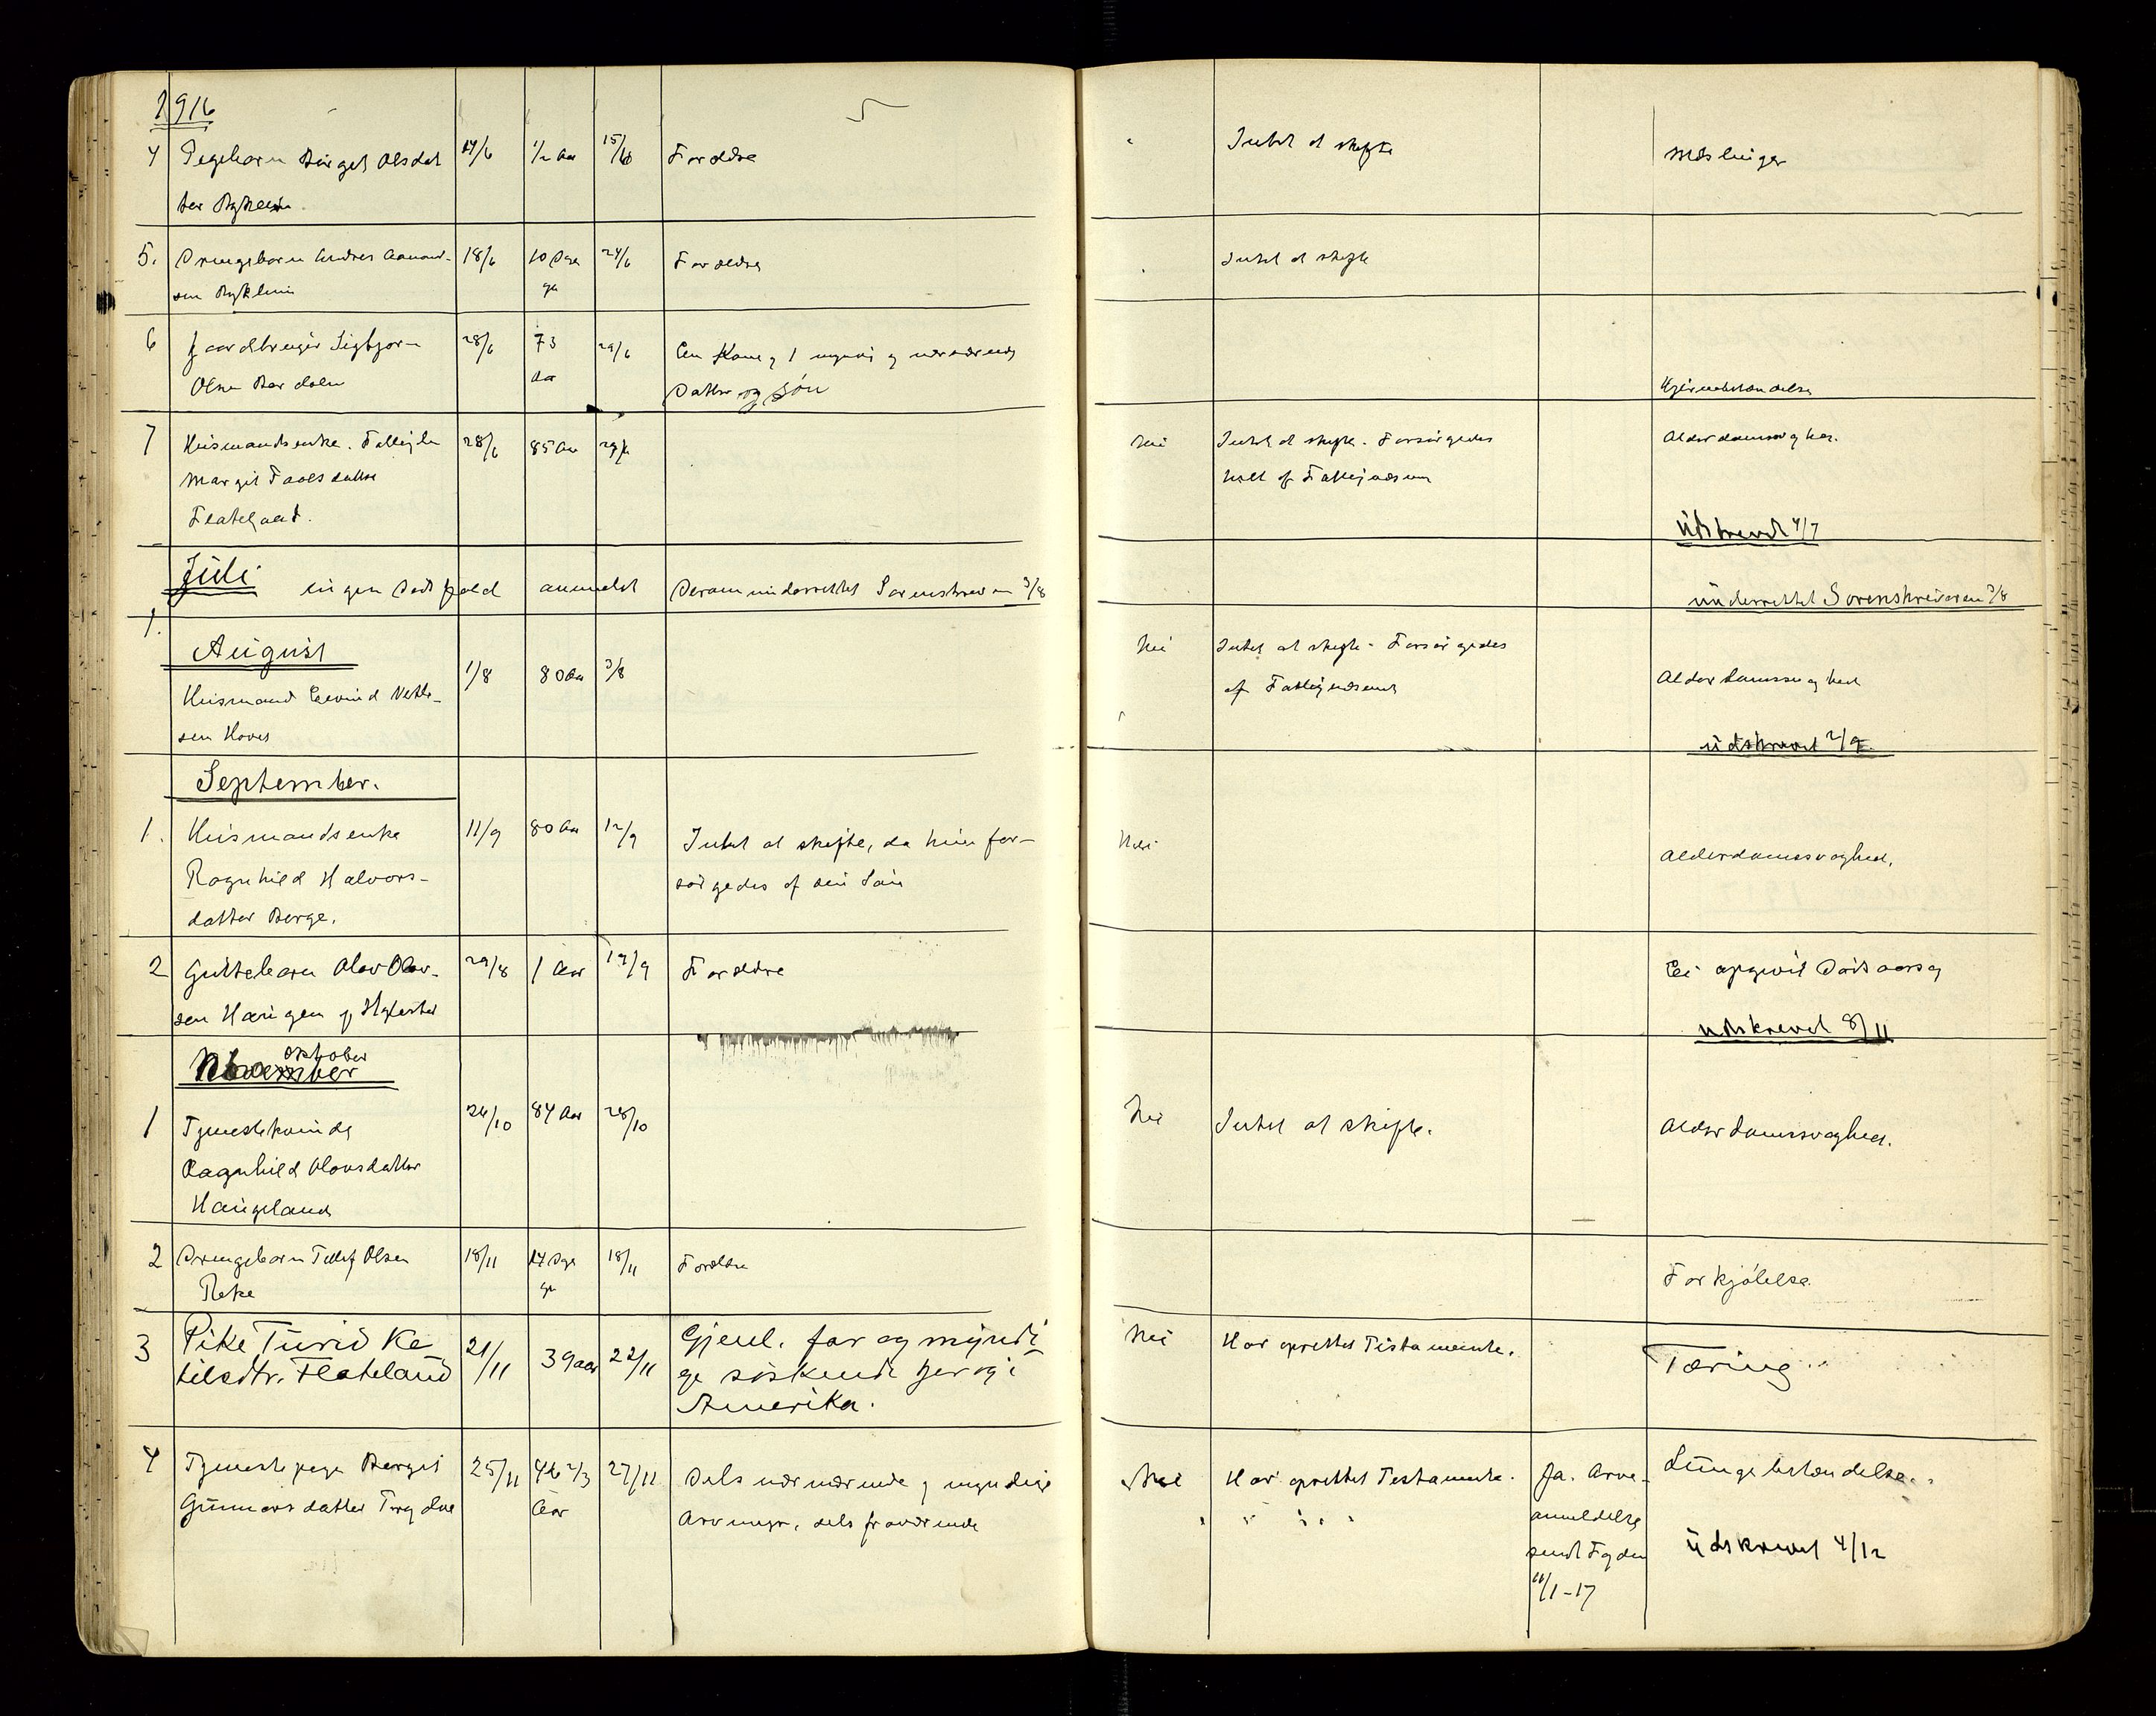 1916
4 Pigebarn Birgit Olsdat 14/6 1/2 Aar 15/6 Forældre Intet at skifte Mæslinger
ter
5. Drengebarn Andres Aanond- 18/6 10 Da 24/6 Forældre Intet at skifte
sen ge
6 Gaardbruger Sigbjørn 28/6 73 29/6 En Kone og 1 myndig og nærværende
Olsen Aar Datter og Søn Hjernebetændelse
7 Husmandsenke. Fattiglem 28/6 85 Aar 29/6 Nei Intet at skifte. Forsørgedes Alderdomssvaghed.
Margit Tarelsdatter helt af Fattigvæsenet
Flateland.
Udskrevet 4/7
Juli ingen Dødsfald anmeldt Derom underrettet Sorenskriveren 3/8 underrettet Sorenskriveren 3/8
1.
August 1/8 80 Aar 3/8 Nei Intet at skifte - Forsørgedes
Husmand Eivind Vetle- af Fattigvæsenet Alderdomssvaghed
sen Hoves
udskrevet 2/9
September.
1. Husmandsenke 11/9 80 Aar 12/9 Intet at skifte, da hun for- Nei Alderdomssvaghed.
Ragnhild Halvors- sørgedes af sin Søn
datter Berge.
2 Guttebarn Olav Olav- 29/8 1 Aar 17/9 Forældre Ei opgivet Dødsaarsag
sen Haugen
udskrevet 8/11
Oktober
November
1 Tjenestekvinde 26/10 84 Aar 28/10 Nei Intet at skifte. Alderdomssvaghed.
Ragnhild Olavsdatter
Haugeland
2 Drengebarn Tellef Olsen 18/11 14 Da 18/11 Forældre Forkjølelse
ge
3 Pike Turid Ke 21/11 39 aar 22/11 Gjenl. far og myndi- Nei Har oprettet Testamente. Tæring
tilsdtr. Flateland ge søskende her og i
Amerika.
4 Tjenestepige Berget 25/11 46 2/3 27/11 Dels nærværende og myndige Nei Har oprettet Testamente. Ja. Arve- Lungebetændelse.
Gunnarsdatter Aar Arvinger, dels fraværende " " " " anmeldelse
sendt Fogden udskrevet 4/12
10/1-17